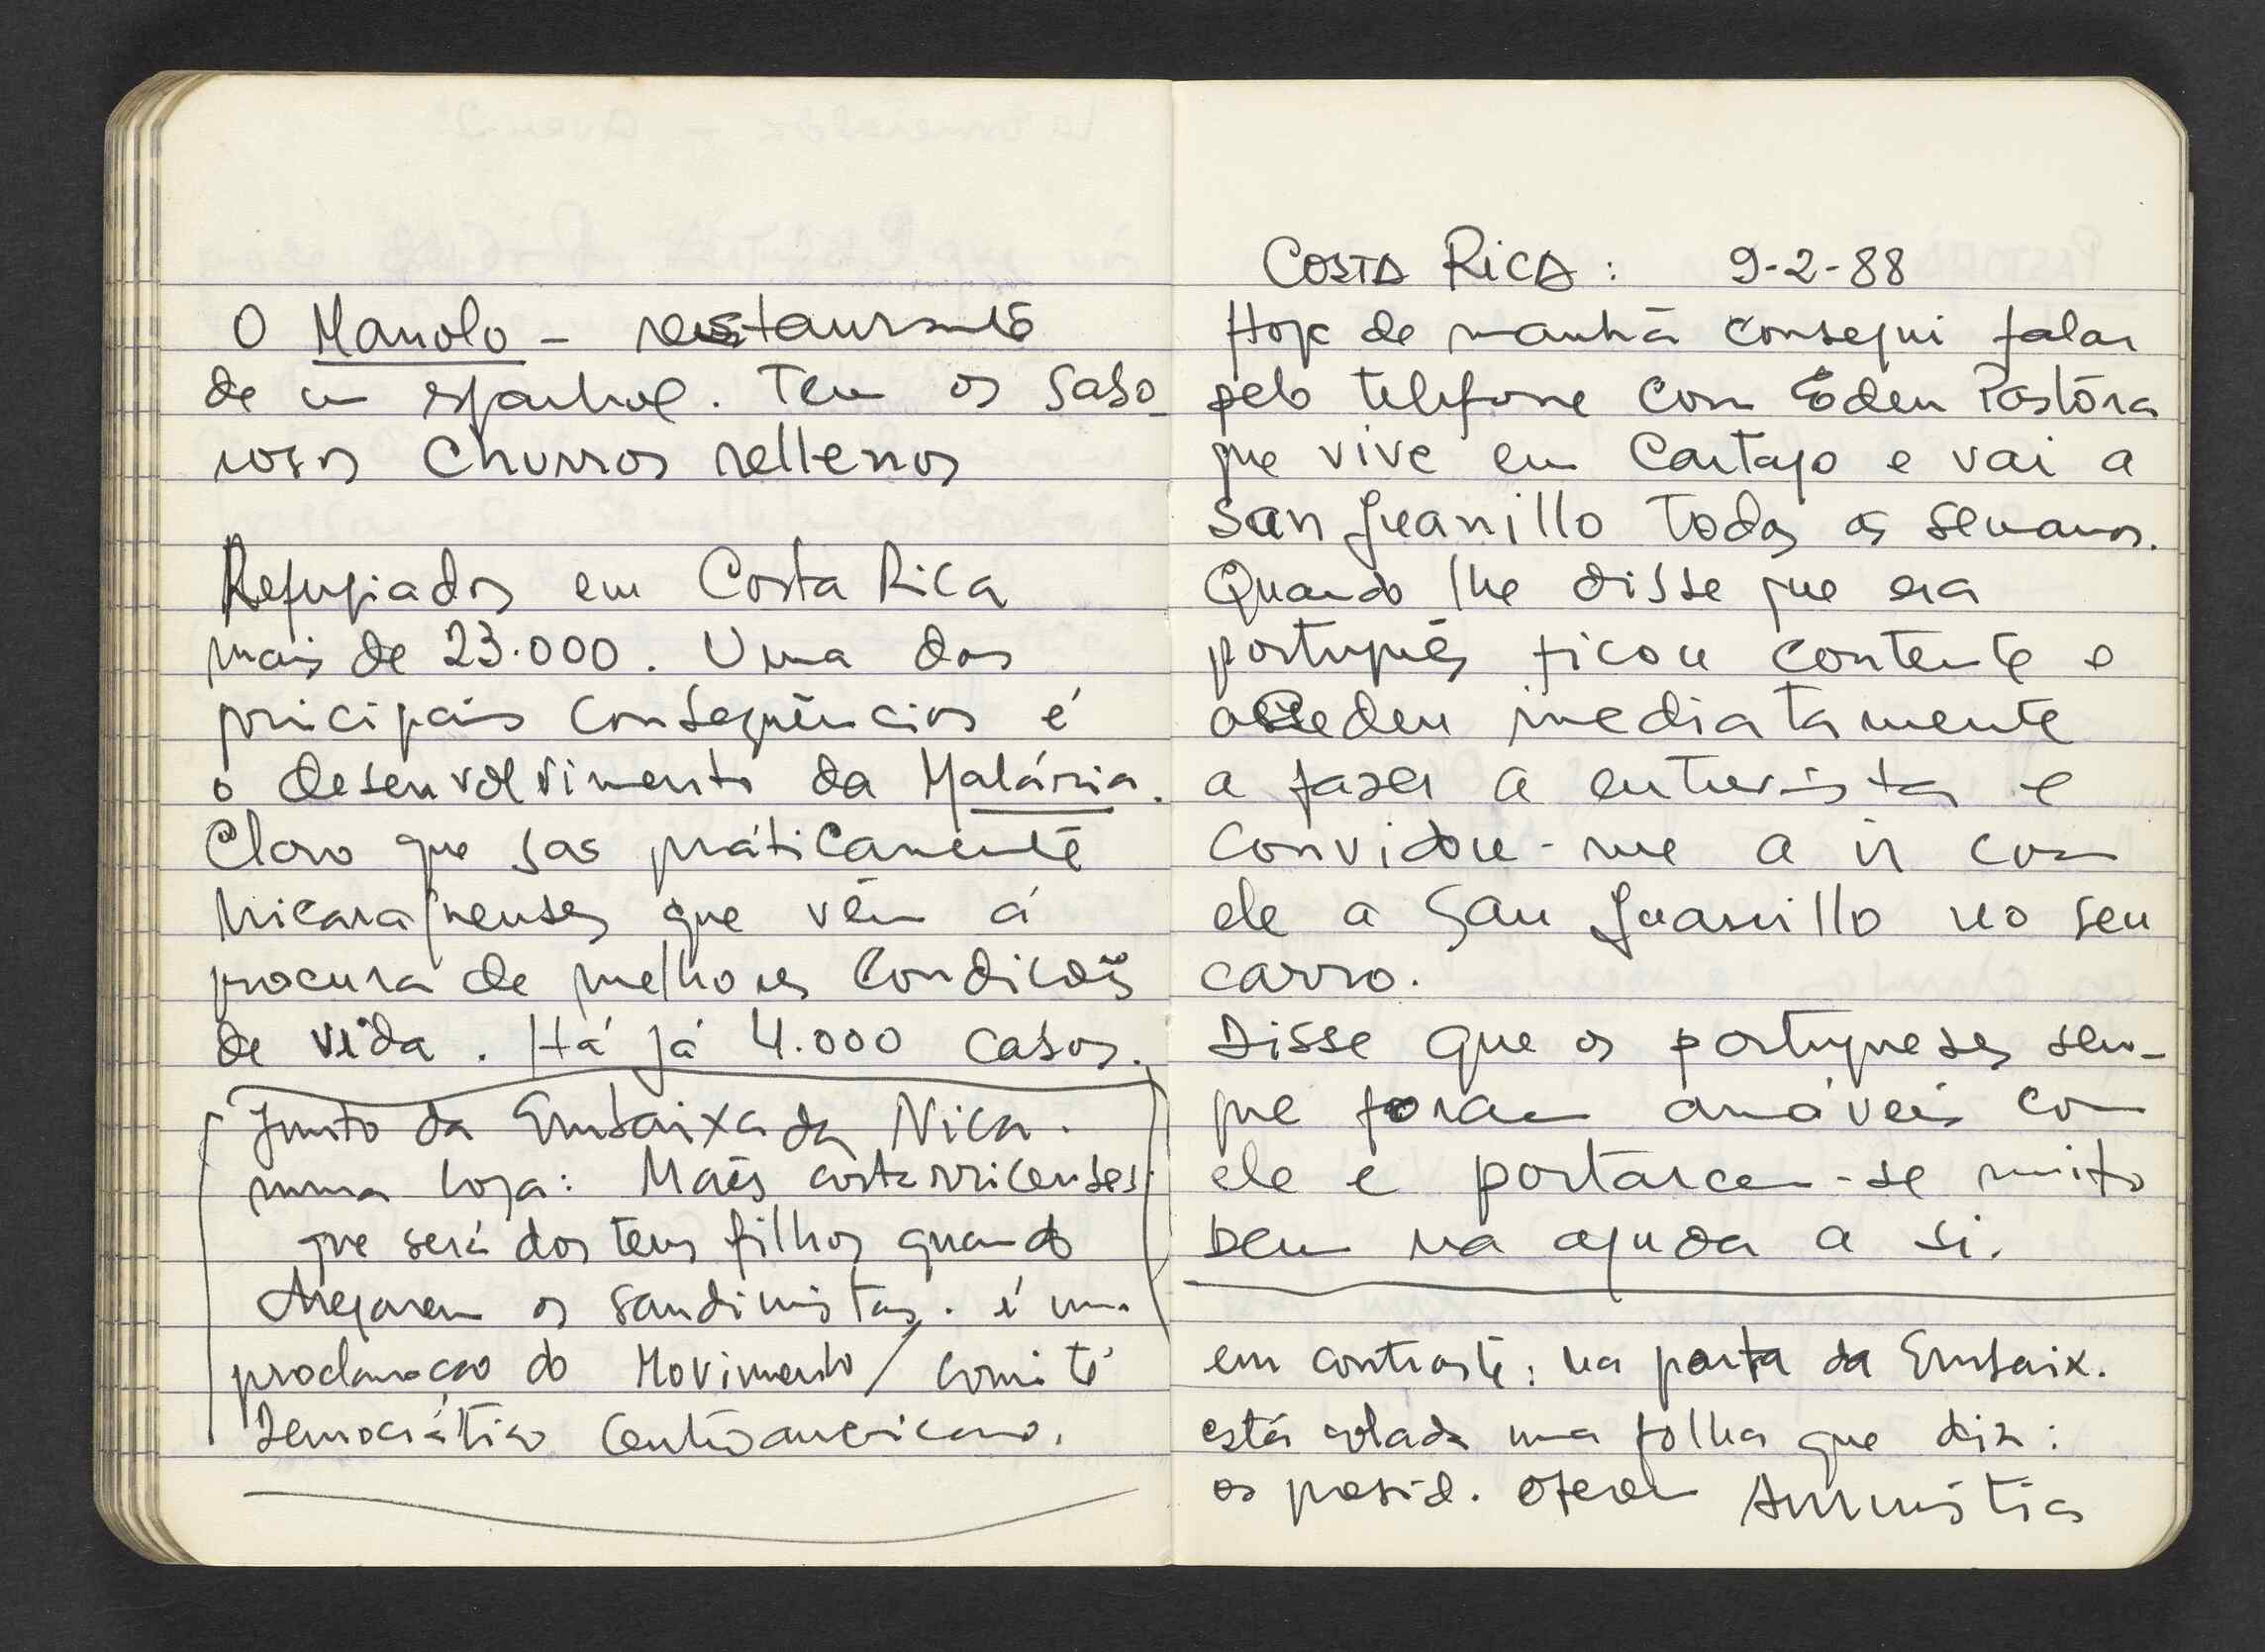 O Manolo - restaurante
de um espanhol. Tem os sabo-
rosos Churros rellenos
Refugiados em Costa Rica
mais de 23.000. Uma das
pricipais consequências é
o desenvolvimento da Malária.
Claro que sao práticamente
nicaraguenses que vêm á
procura de melhores condições
de vida. Há já 4.000 casos.
Junto da Embaixada da Nica.
numa loja: Maes costarricenses
que será dos teus filhos quando
chegarem os sandinistas. é uma
proclamaçao do Movimento/Comité
Democrático Centroamericano.
COSTA RICA: 9-2-88
Hoje de manhã consegui falar
pelo telefone com Eden Pastóra
que vive em Cartago e vai a
San Juanillo todas as semanas.
Quando lhe disse que era
português ficou contente e
acedeu imediatamente
a fazer a entrevista e
convidou-me a ir com
ele a San Juanillo no seu
carro.
Disse que os portugueses sem-
pre foram amáveis com
ele e portaram-se muito
bem na ajuda a si.
em contraste: na porta da Embaix.
está colada uma folha que diz:
os presid. Amnistia